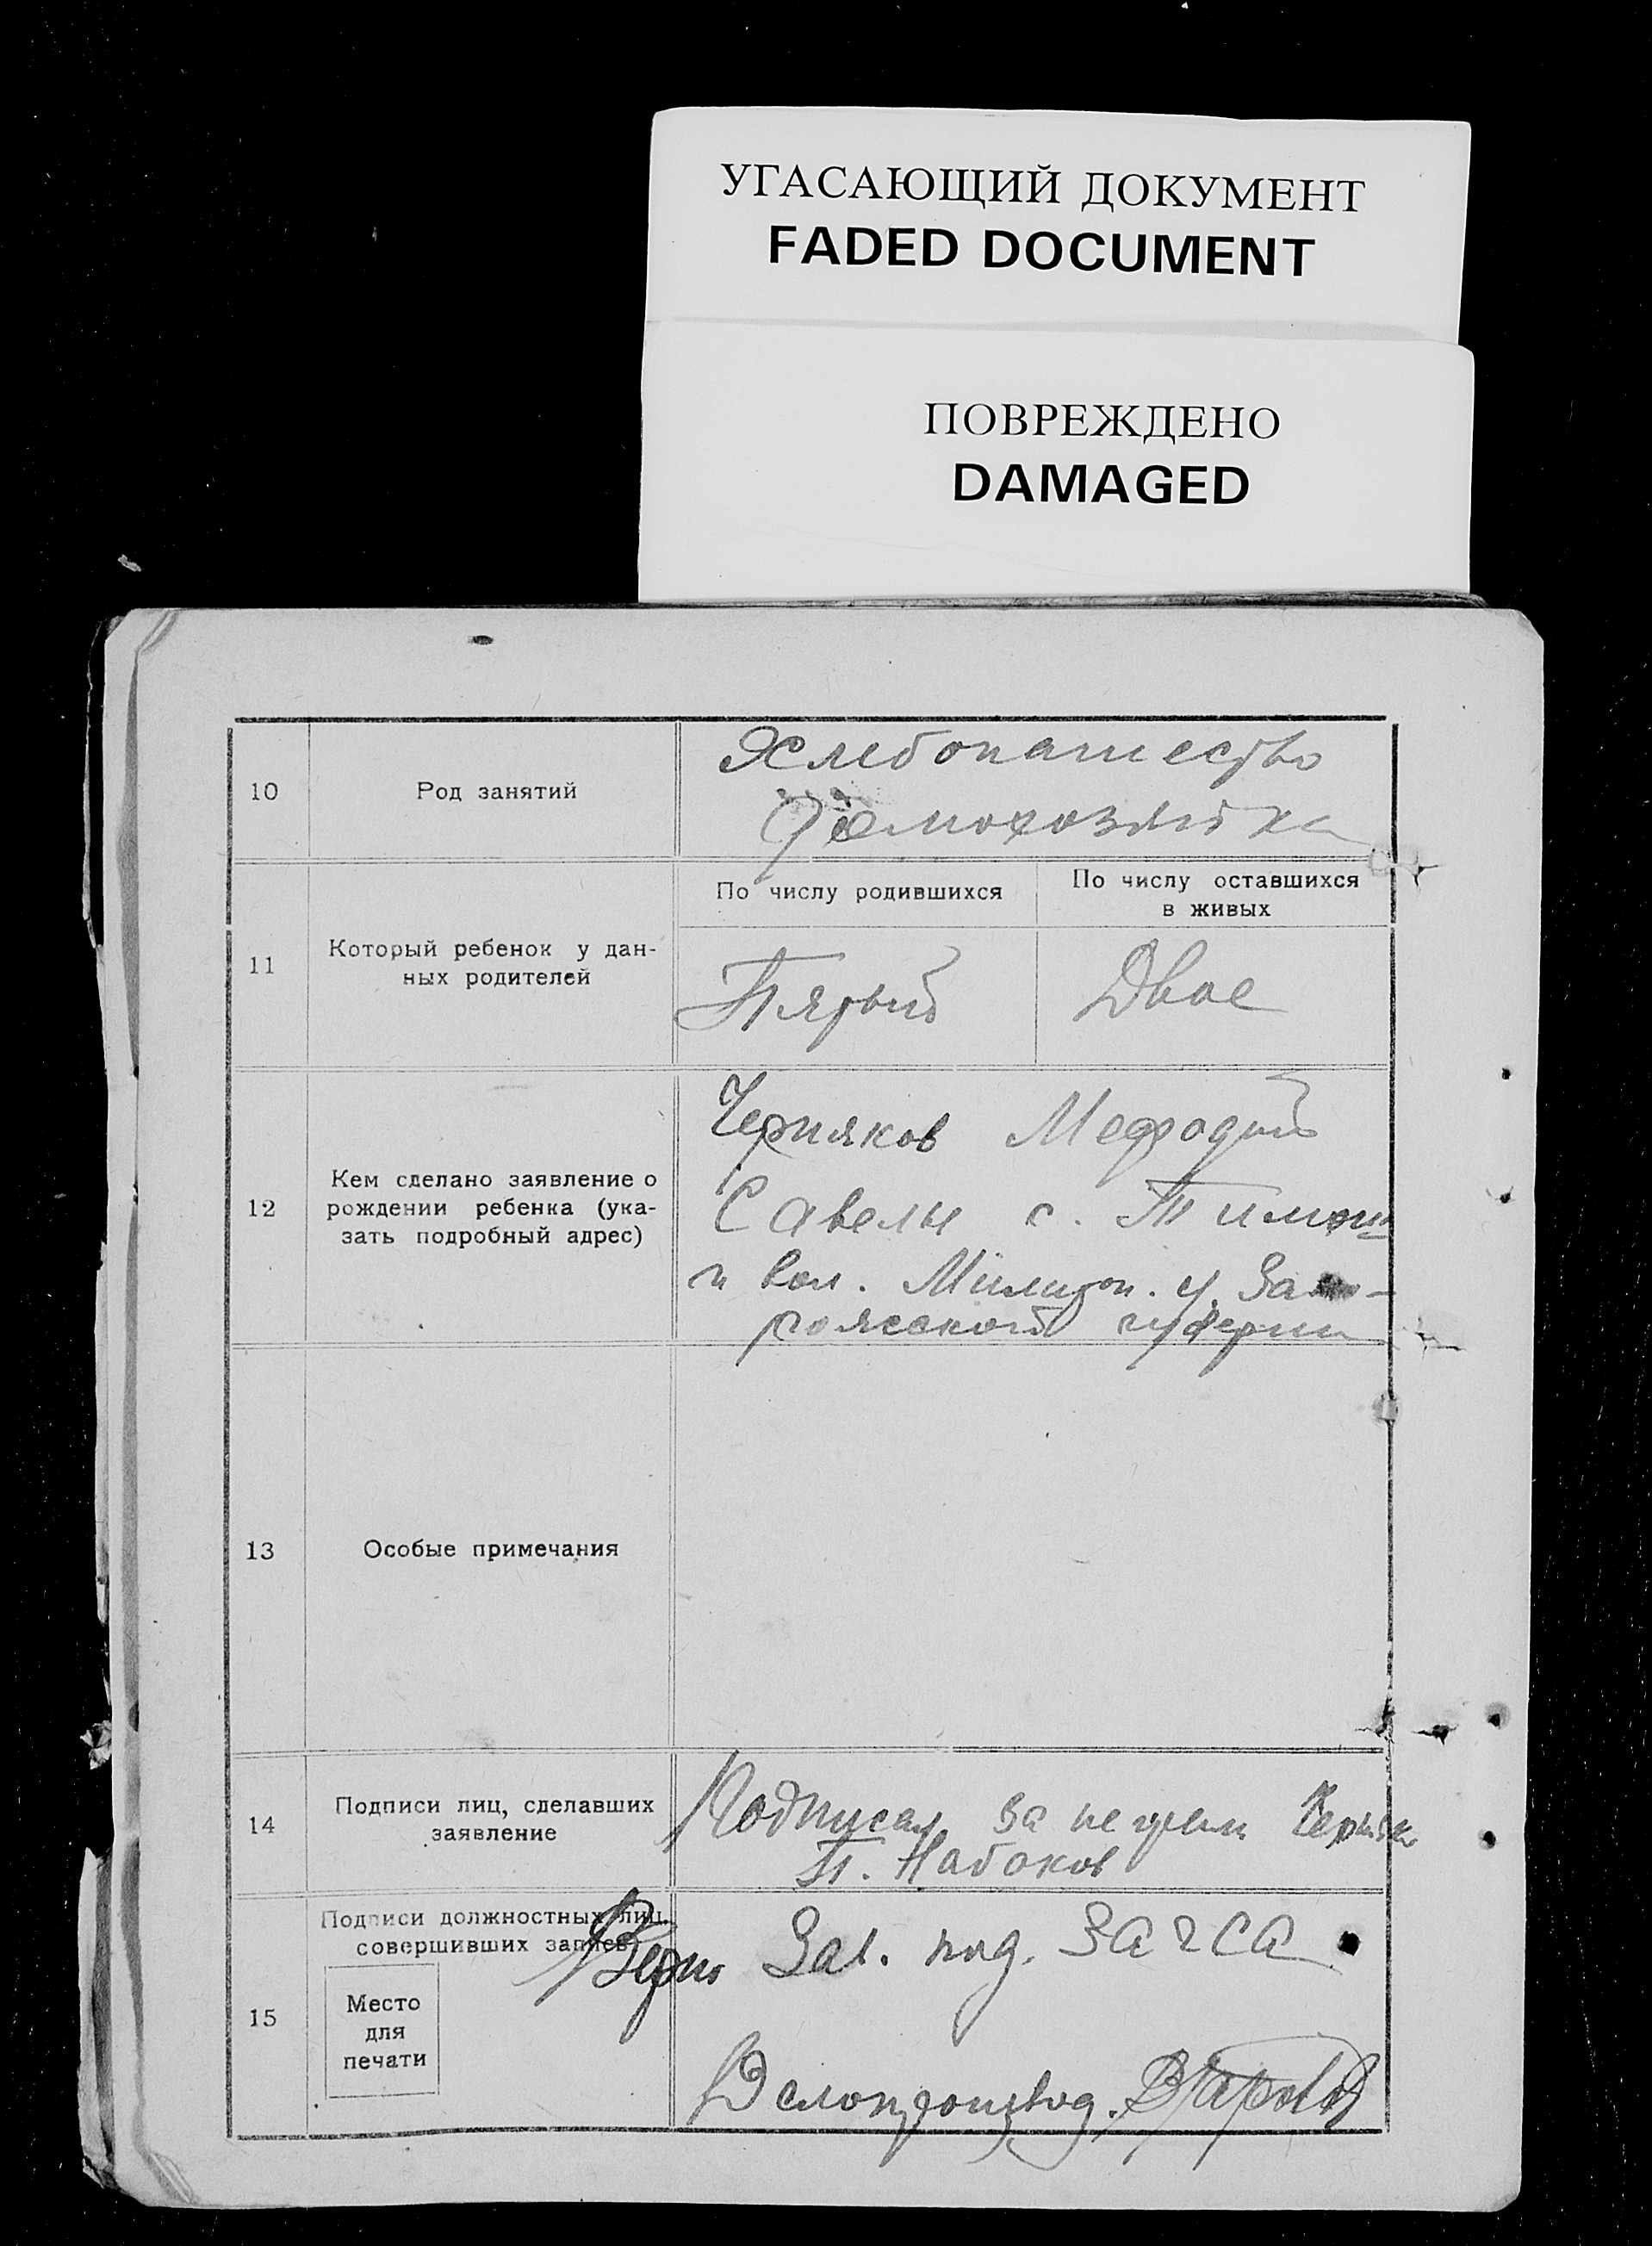 УГАСАЮЩИЙ ДОКУМЕНТ
FADED DOCUMENT
ПОВРЕЖДЕНО
DAMAGED
10
Род занятий
Хлебопашество
Домохозяйка
11
Который ребенок у дан-
ных родителей
По числу родившихся
По числу оставшихся
в живых
Пятый
Двое
12
Кем сделано заявление о
рождении ребенка (ука-
зать подробный адрес)
Черняков Мефодий
Савелы с. Тимош
вол. Мелитоп. у. За-
рожской губерни
13
Особые примечания
14
Подписи лиц, сделавших
заявление
Подписал за неграм Черняк
П. Набоков
15
Подписи должностных лиц,
совершивших запись
Место
для
печати
Верно Зав. под. ЗАГСА
Делопроизвод.